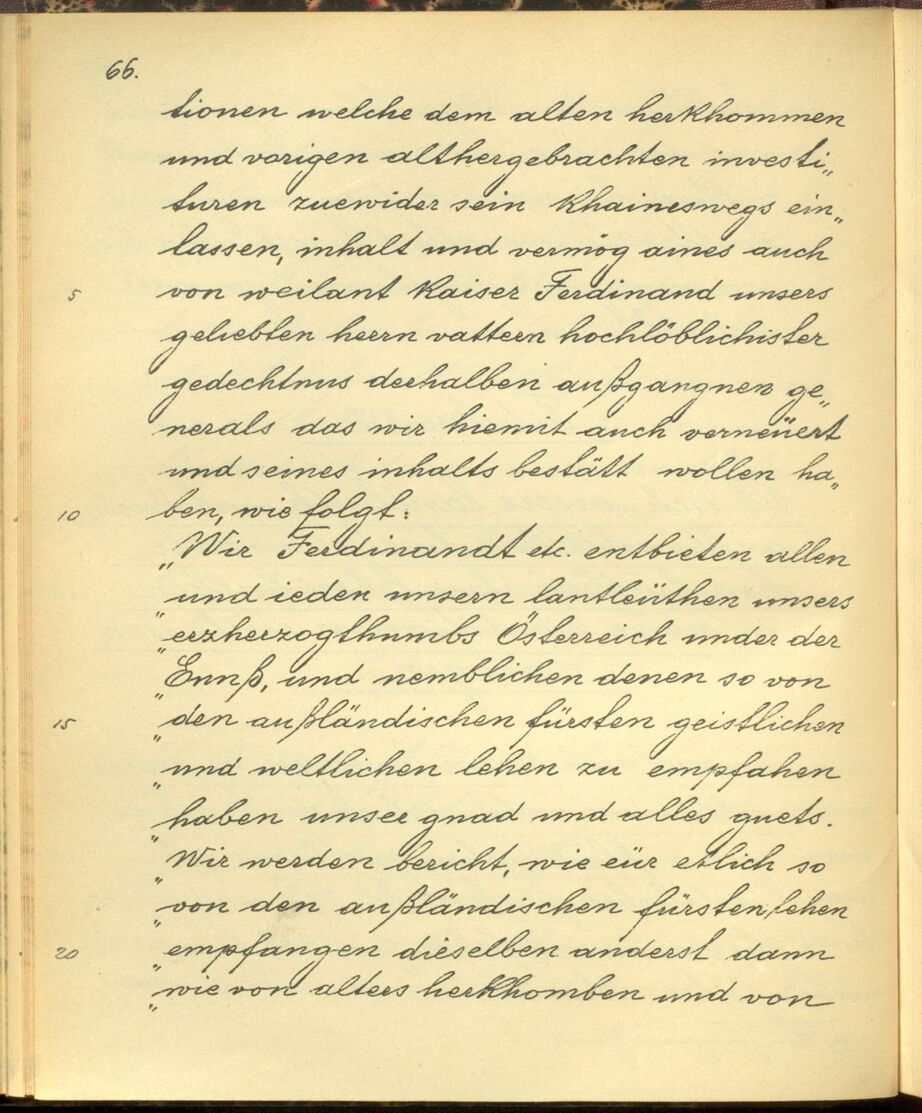 66.
tionen welche dem alten herkhommen
und vorigen althergebrachten investi„
turen zuewider sein khaineswegs ein„
lassen, inhalt und vermög aines auch
5 von weilant kaiser Ferdinand unsers
geliebten herrn vattern hochlöblichister
gedechtnus derhalben außgangnen ge„
nerals das wir hiemit auch verneüert
und seines inhalts bestätt wollen ha„
10 ben, wie folgt:
„Wir Ferdinandt etc. entbieten allen
„und ieden unsern lantleüthen unsers
„erzherzogthumbs Österreich under der
„Ennß, und nemblichen denen so von
15 „den außländischen fürsten geistlichen
„und weltlichen lehen zu empfahen
„haben unser gnad und alles guets.
„Wir werden bericht, wie eür etlich so
„von den außländischen fürsten lehen
20 „empfangen dieselben anderst dann
„wie von alters herkhomben und von